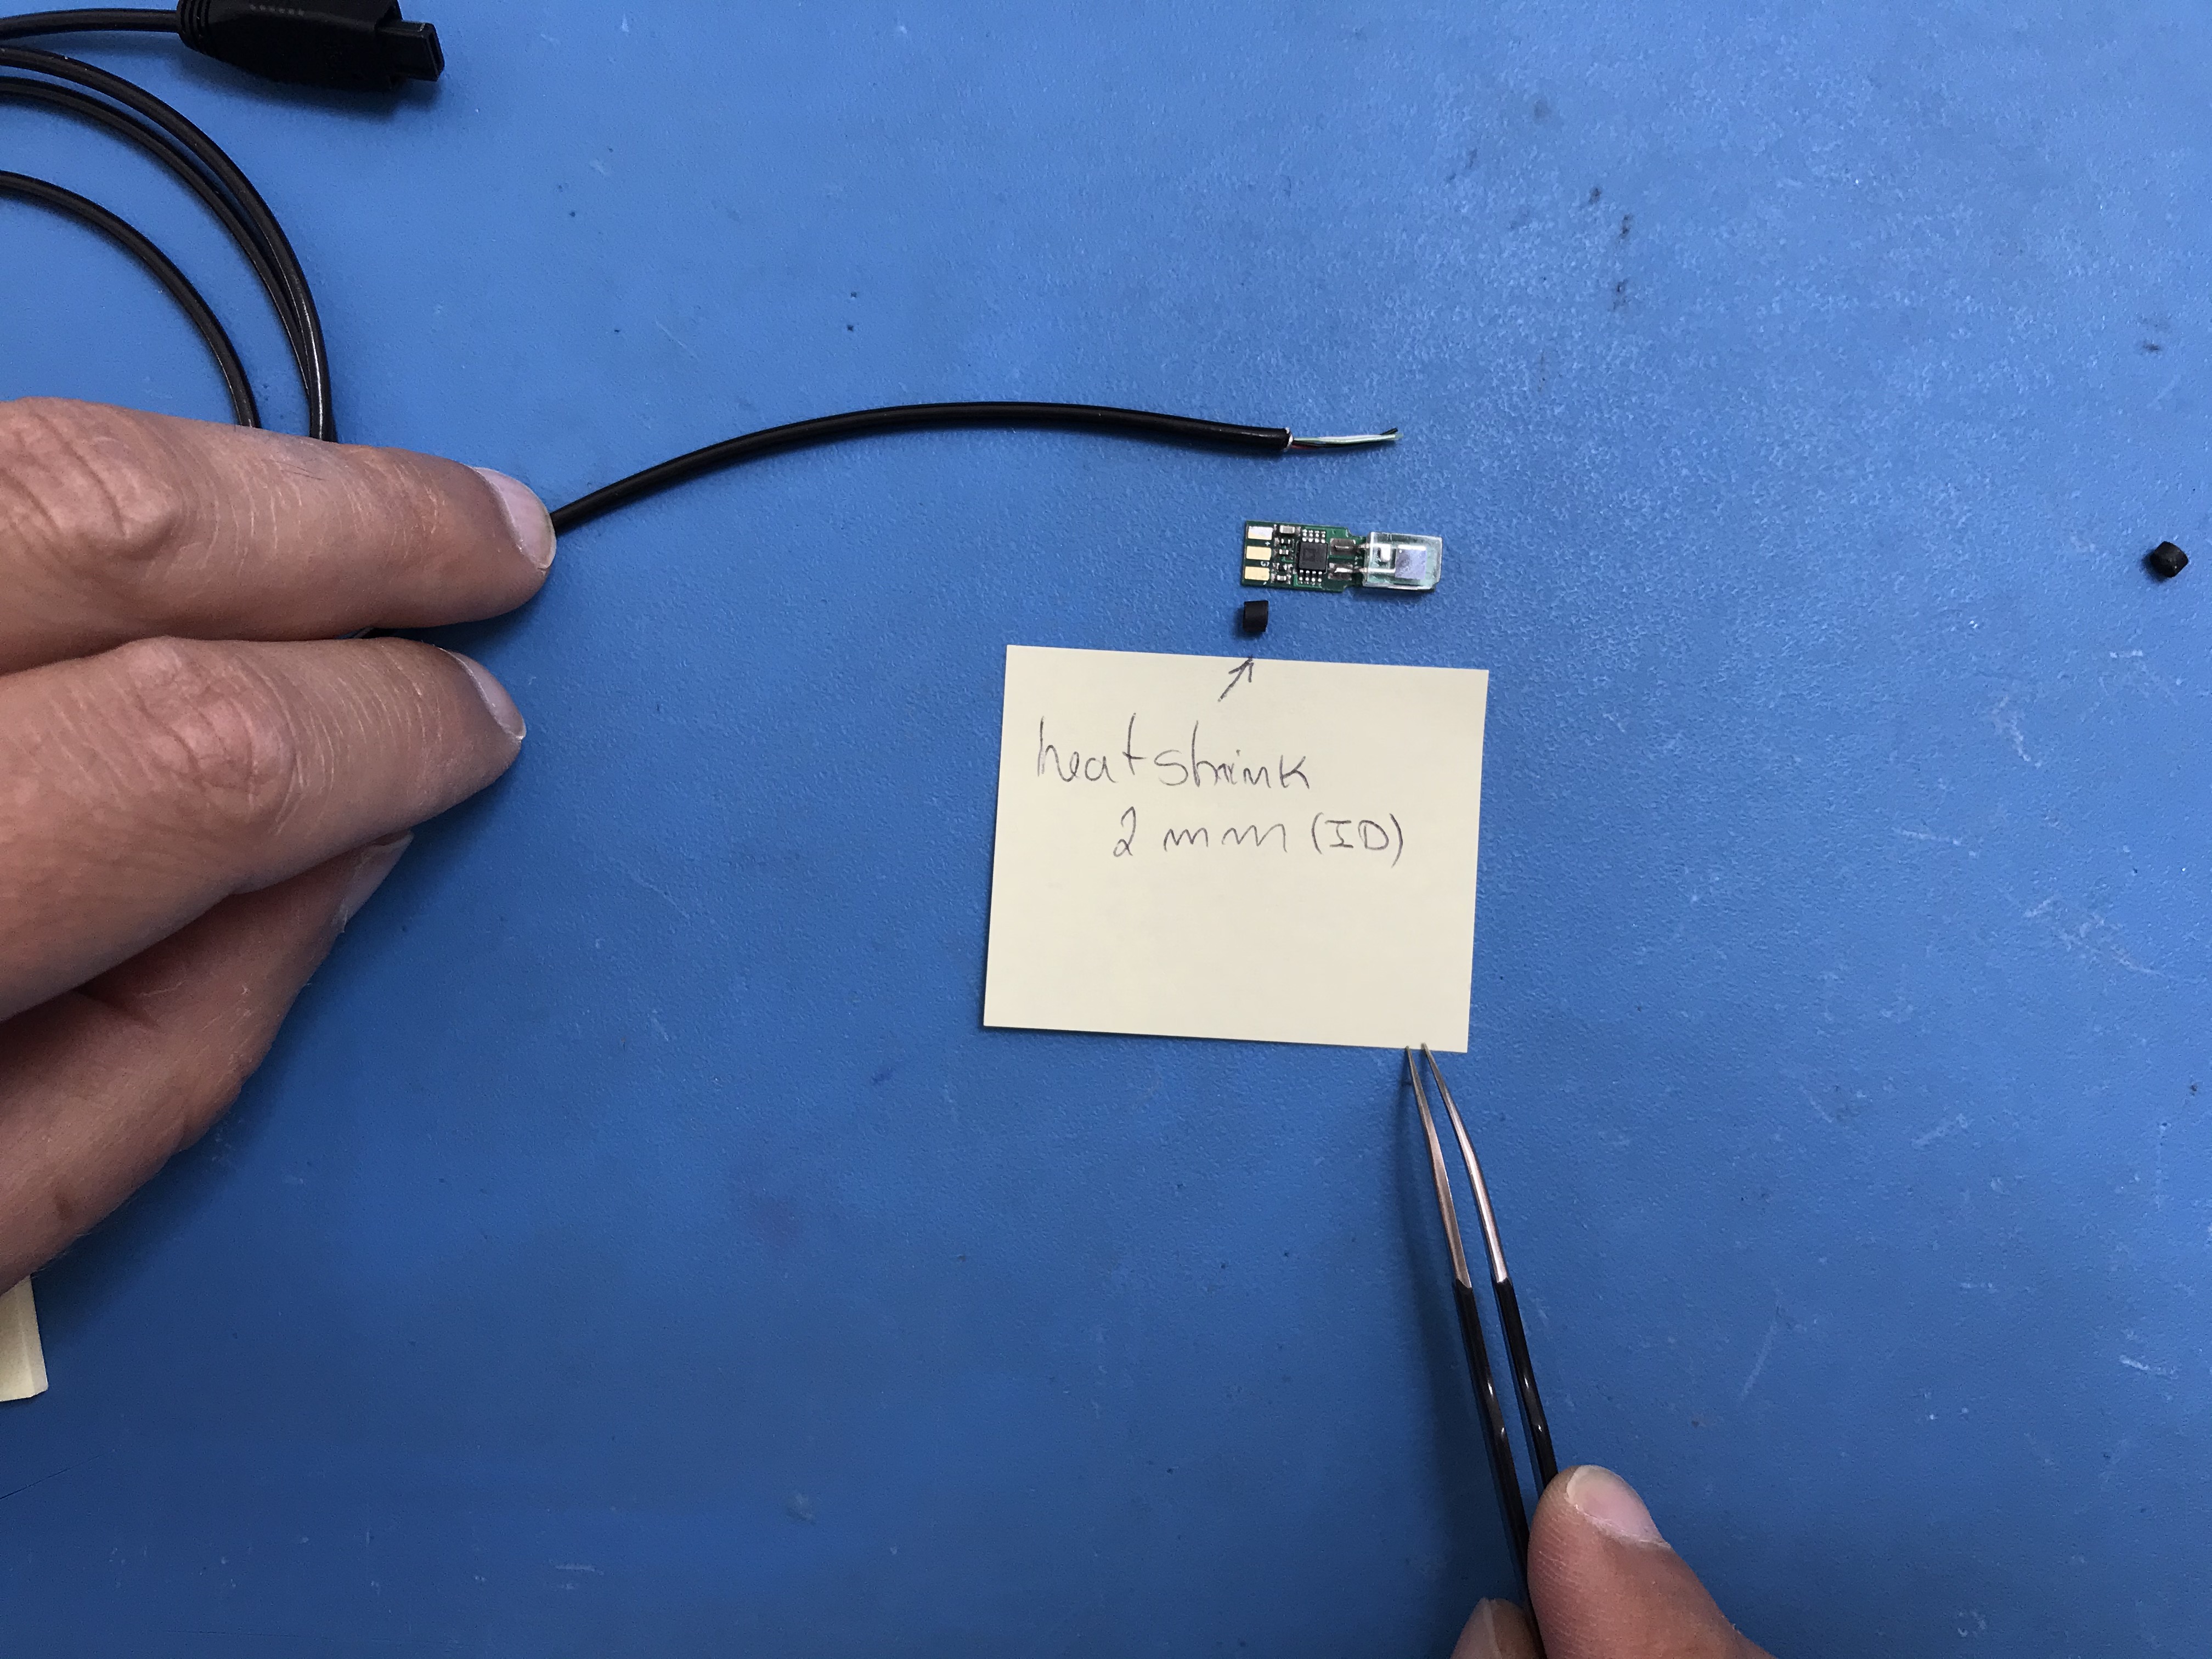 heatshrink
2 mm (ID)